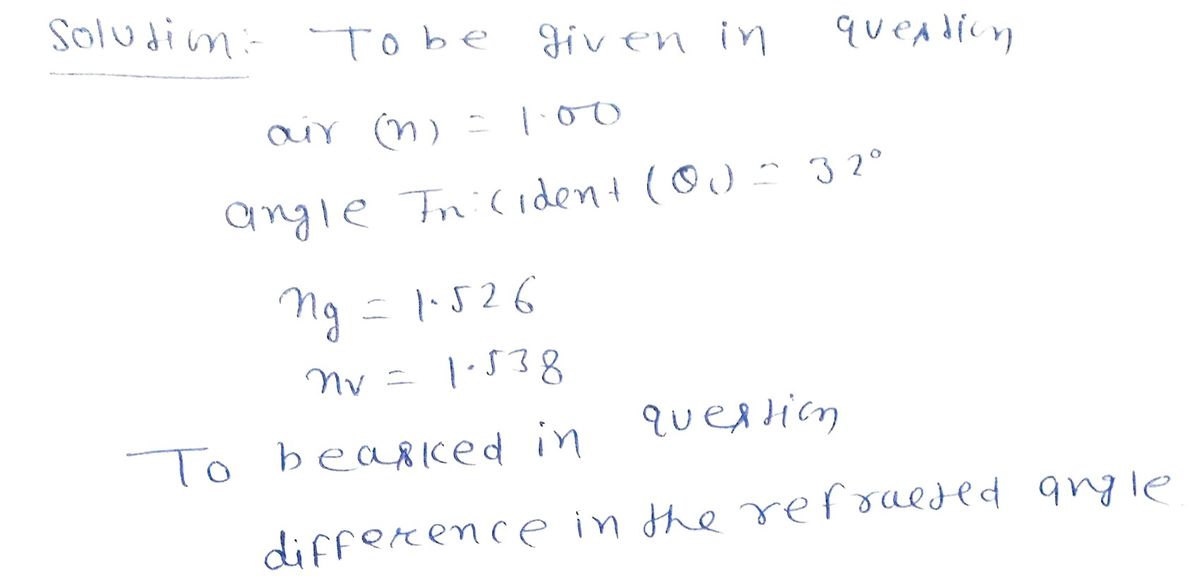 Solution:- To be given in question
air (n) = 1.00
angle Incident (θi) = 32°
ng = 1.526
nv = 1.538
To be asked in question
difference in the refracted angle